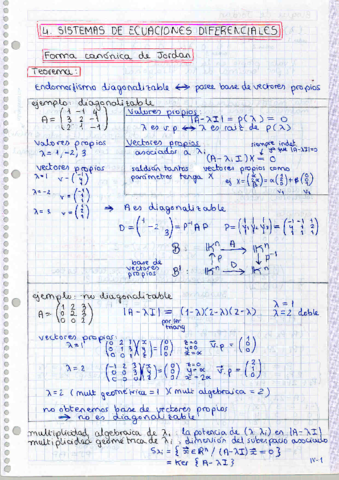 4. SISTEMAS DE ECUACIONES DIFERENCIALES
Forma canónica de Jordan
Teorema:
Endomorfismo diagonalizable ↔ posee base de vectores propios
ejemplo: diagonalizable
A = (1 -1 4 / 3 2 -1 / 2 1 -1)
Valores propios
|A-λI| = p(λ) = 0
λ es v.p. ↔ λ es raíz de p(λ)
valores propios
λ = 1, -2, 3
Vectores propios
asociados a λi
siempre indet. ya que |A-λI|=0
(A-λiI)X = 0
saldrán tantos vectores propios como
parámetros tenga X
vectores propios
λ=1
λ=-2
λ=3
→ A es diagonalizable
D = (1 -2 3) = P⁻¹AP
B: ℝⁿ A→ ℝⁿ
↑P ↓P⁻¹
base de vectores propios
B': ℝⁿ D→ ℝⁿ
ejemplo: no diagonalizable
A = (1 2 3 / 0 2 3 / 0 0 2)
|A-λI| = (1-λ)(2-λ)(2-λ)
por ser triang
λ=1
λ=2 doble
vectores propios:
λ=1
λ=2
λ=2 (mult geométrica = 1 X mult algebraica = 2)
no obtenemos base de vectores propios
→ no es diagonalizable
multiplicidad algebraica de λi, la potencia de (λ-λi) en |A-λI|
multiplicidad geométrica de λi, dimensión del subespacio asociado
Sλi = {x⃗ ∈ ℝⁿ / (A-λI)x⃗ = 0}
= Ker {A-λI}
IV-1